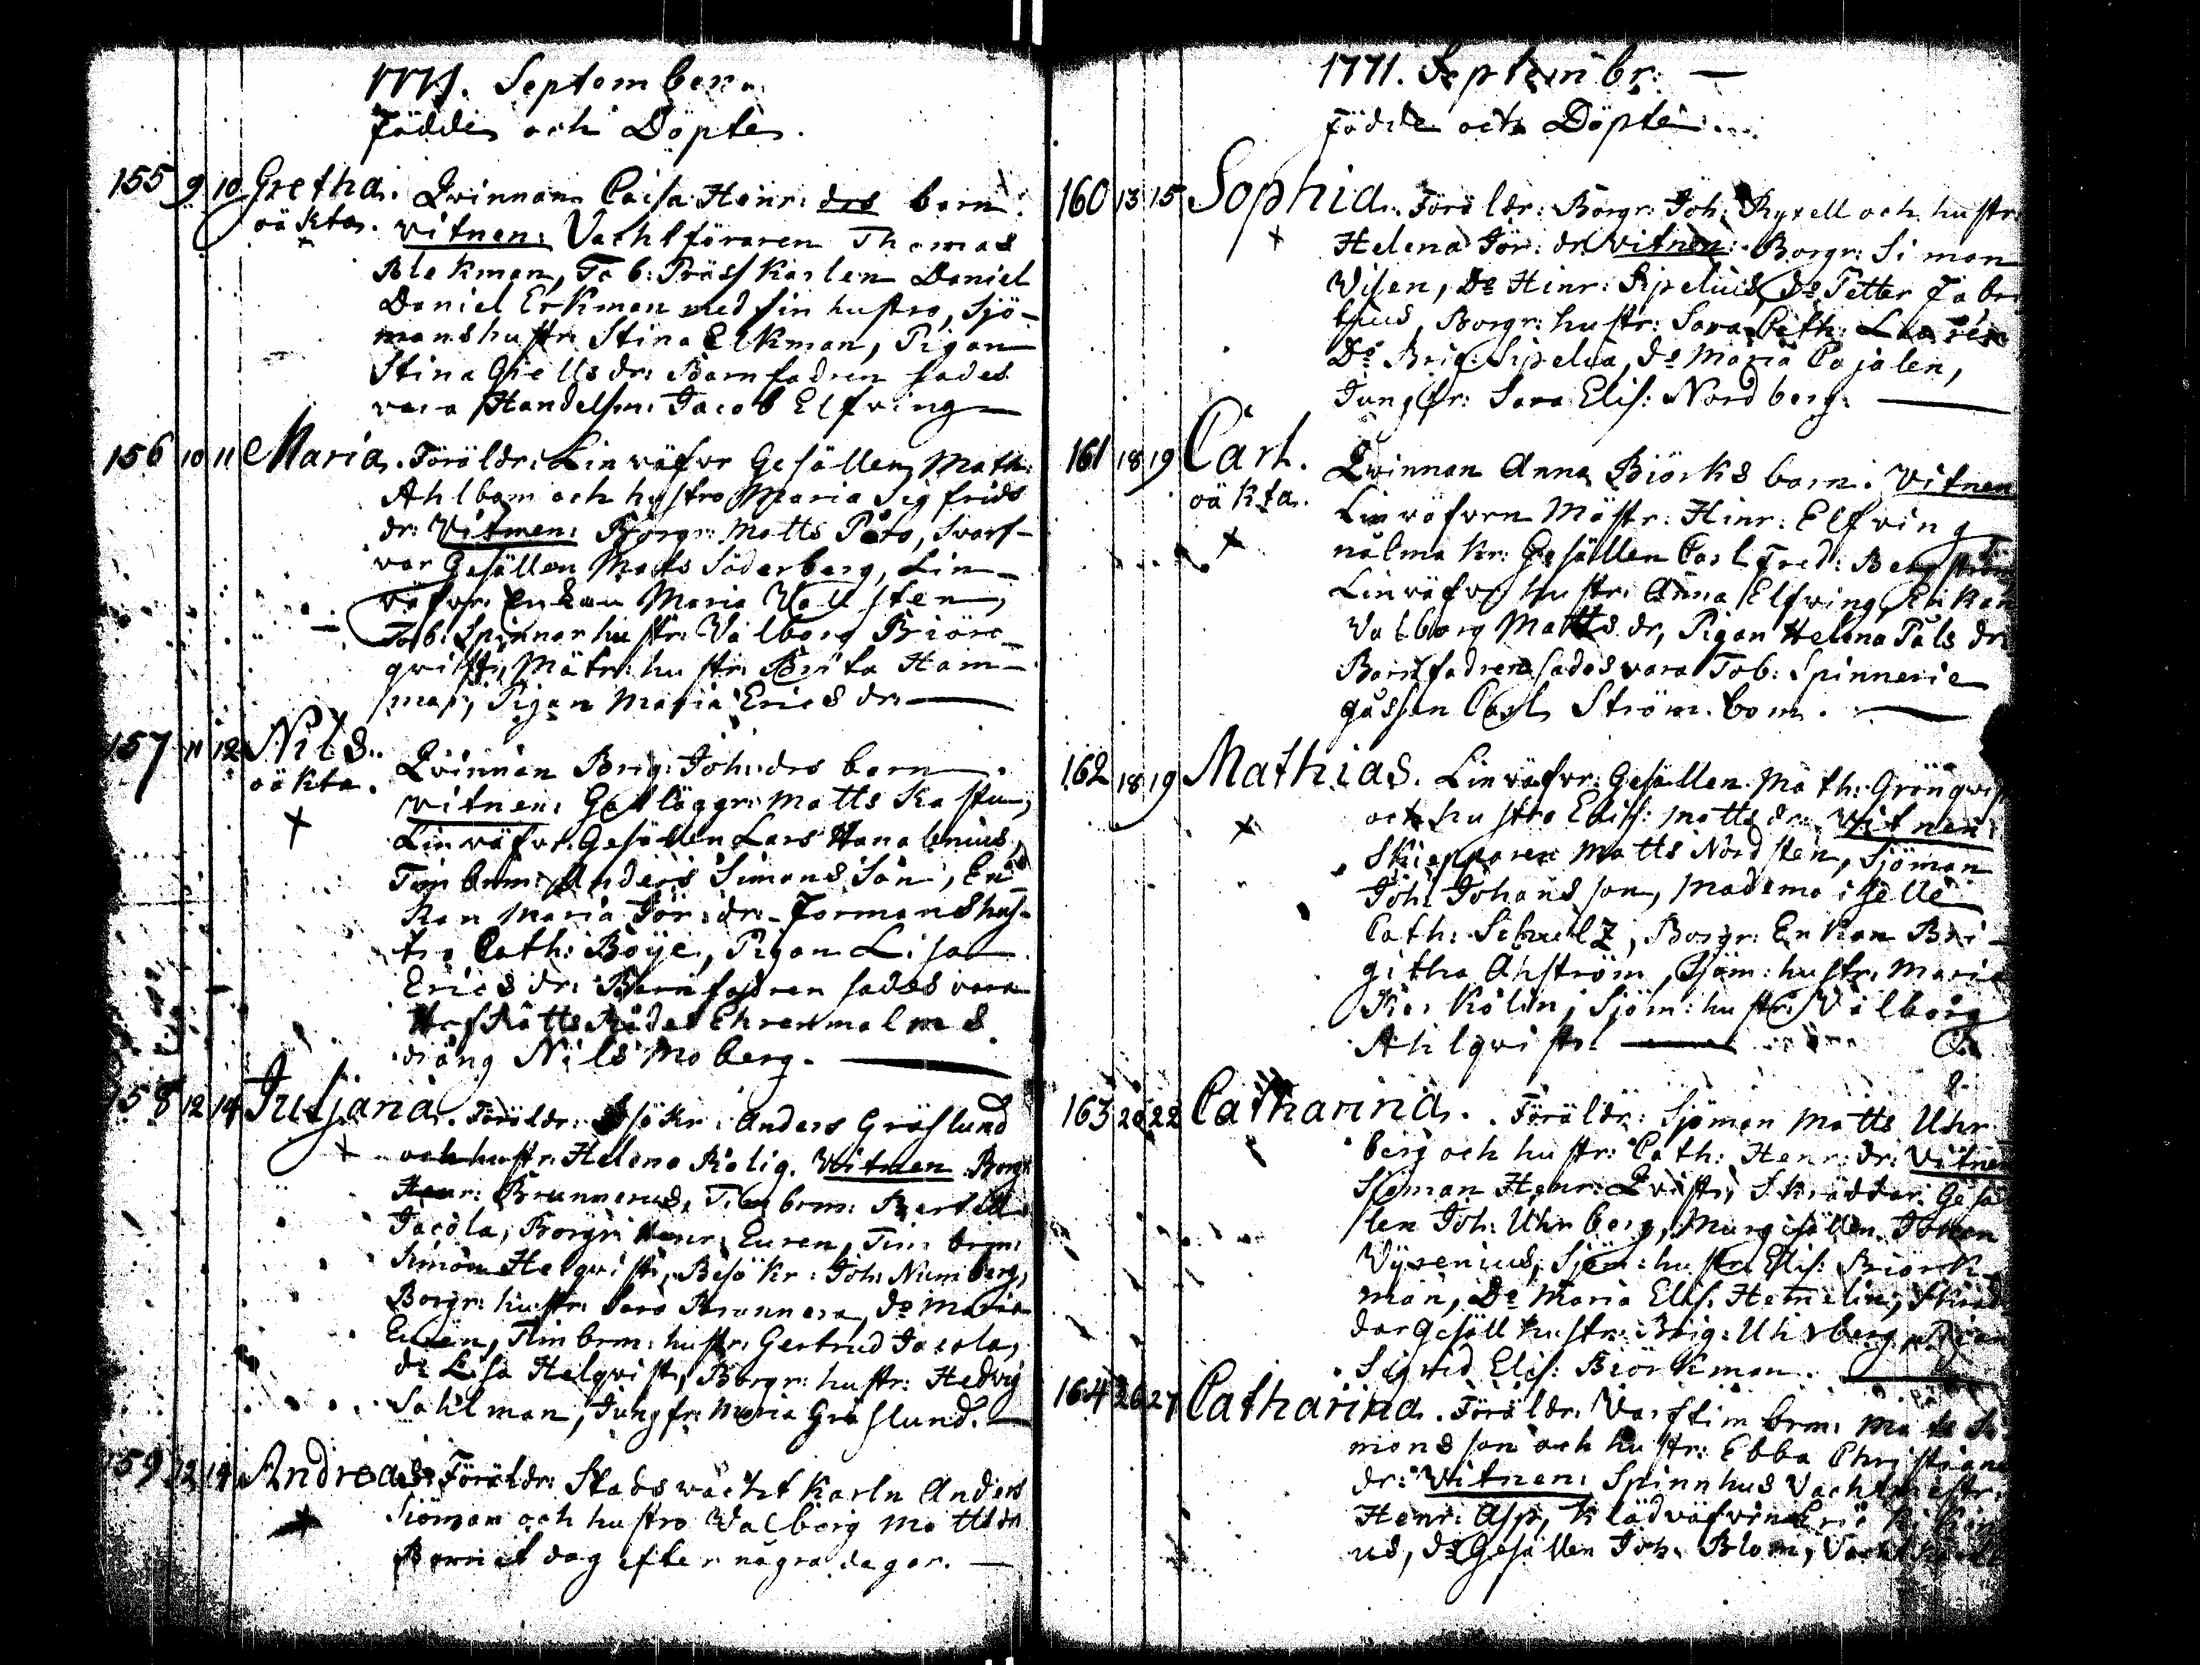 1771. September.
Födde och Döpte.
155 9 10 Gretha. Qvinnan Caisa Henr: drs barn.
oäkta. vitnen: Vachtföraren Thomas
Blekman, Tob: Präss Karlen Daniel
Daniel Ekman med sin hustro, Sjö-
manshustr: Stina Elkman, Pigan
Stina Giells dr: Barnfadren sades
vara Handelsm: Jacob Elfving
156 10 11 Maria. Föräldr: Linväfvr Gesällen Math:
Ahlbom och hustro Maria Sigfrids
dr: Vitnen: Borgr: Matts Påto, Svarf-
var Gesällen Matts Söderberg, Lin-
väfvr: Enkan Maria Vallsten,
Tob: Spinnar hustr: Valborg Biörc-
qvist, Mätr: hustr: Brita Ham-
mar, Pigan Maria Erics dr:
157 11 12 Nils.. Qvinnan Brig: Joh: drs barn.
oäkta. vitnen: Gatläggr: Matts Kastun,
Linväfvr: Gesällen Lars Hanalenius,
Timbrm: Anders Simons Son, En-
kan Maria Jör: dr: Formans hus-
tro Cath: Böije, Pigan Lisa
Erics dr: Barnfadren sades vara
HofRätts Rådet Ehrenmalms
dräng Nils Moberg.
158 12 14 Juljana. Föräldr: Besökr: Anders Gräslund
och hustr: Helena Rolig. Vitnen: Borgr:
Henr: Brunnerus, Timbrm: Bertill
Jacola, Borgr: Henr: Euren, Timbrm:
Simon Helqvist, Besökr: Joh: Numberg,
Borgr: hustr: Sara Brunnera, Do Maria
Euren, Timbrm: hustr: Gertrud Jacola,
do Lisa Helqvist, Borgr: hustr: Hedvig
Sahlman, Jungfr: Maria Gräslund.
159 12 14 Andreas. Föräldr: Stads wacht Karln Anders
Siöman och hustro Valborg Matts dr
Barnet dog efter några dagar.
1771. Septembr:
Födde och Döpte.
160 13 15 Sophia. Föräldr: Borgr: Joh: Ryxell och hustr:
Helena Jör: dr: vitnen: Borgr: Simon
Visen, Do Hinr: Sipelius, Do Petter Fabri
tjus, Borgr: hustr: Sara Cath:
Do Brig: Sipelia, do Maria Cajalen,
Jungfr: Sara Elis: Nordberg.
161 18 19 Carl. Qvinnan Anna Biörks barn. Vitnen
oäkta. Linväfvrn Mästr: Hinr: Elfving
nålmakr: Gesällen Carl Fred: Bergström
Linväfvr hustr: Anna Elfving, Enkan
Valborg Matts dr, Pigan Helena Påls dr:
Barnfadren sades vara Tob: Spinnerie
gåssen Carl Ström.bom.
162 18 19 Mathias. Linväfvr: Gesällen Math: Grönqvist
och hustro Elis: Matts dr: Vitnen:
Skiepparen Matts Nordsten, Sjöman
Joh: Johansson, Mademoiselle
Cath: Schultz, Borgr: Enkan Bri-
githa Åhström, Sjöm: hustr: Maria
Kiölin, Sjöm: hustr: Valborg
Ahlqvist.
163 20 22 Catharina. Föräldr: Sjöman Matts Uhr
berg och hustr: Cath: Henr: dr: Vitnen
Sjöman Henr: Qvist, Skräddar Gesäl
len Joh: Uhrberg, Murgesällen Johan
Vyrenius, Sjöm: hustr: Elis: Biörk
man, Do Maria Elis: Hemelin, Skräd
dargesäll hustr: Brig: Uhrberg, Pigan
Sigrid Elis: Biörkman.
164 26 27 Catharina. Föräldr: Varftimbrm: Matts Si
monsson och hustr: Ebba Christians
dr: Vitnen: Spinnhus Vachtmestr:
Henr: Asp, Klädväfvrn Eric
us, do Gesällen Joh: Blom,